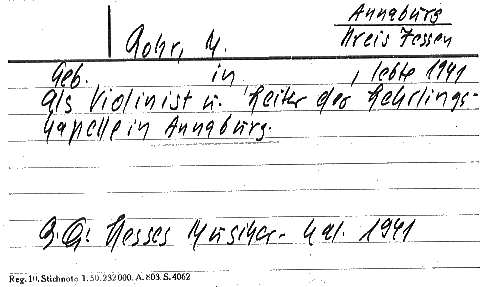 Annaburg
Kreis Jessen
Rohr, M.
Geb. in , lebte 1941
als Violinist u. Leiter der Lehrlings-
kapelle in Annaburg.
B.Q: Hesses Musiker-Kal. 1941
Reg. 10. Stichnote 1. 50. 232 000. A. 803. S. 4062